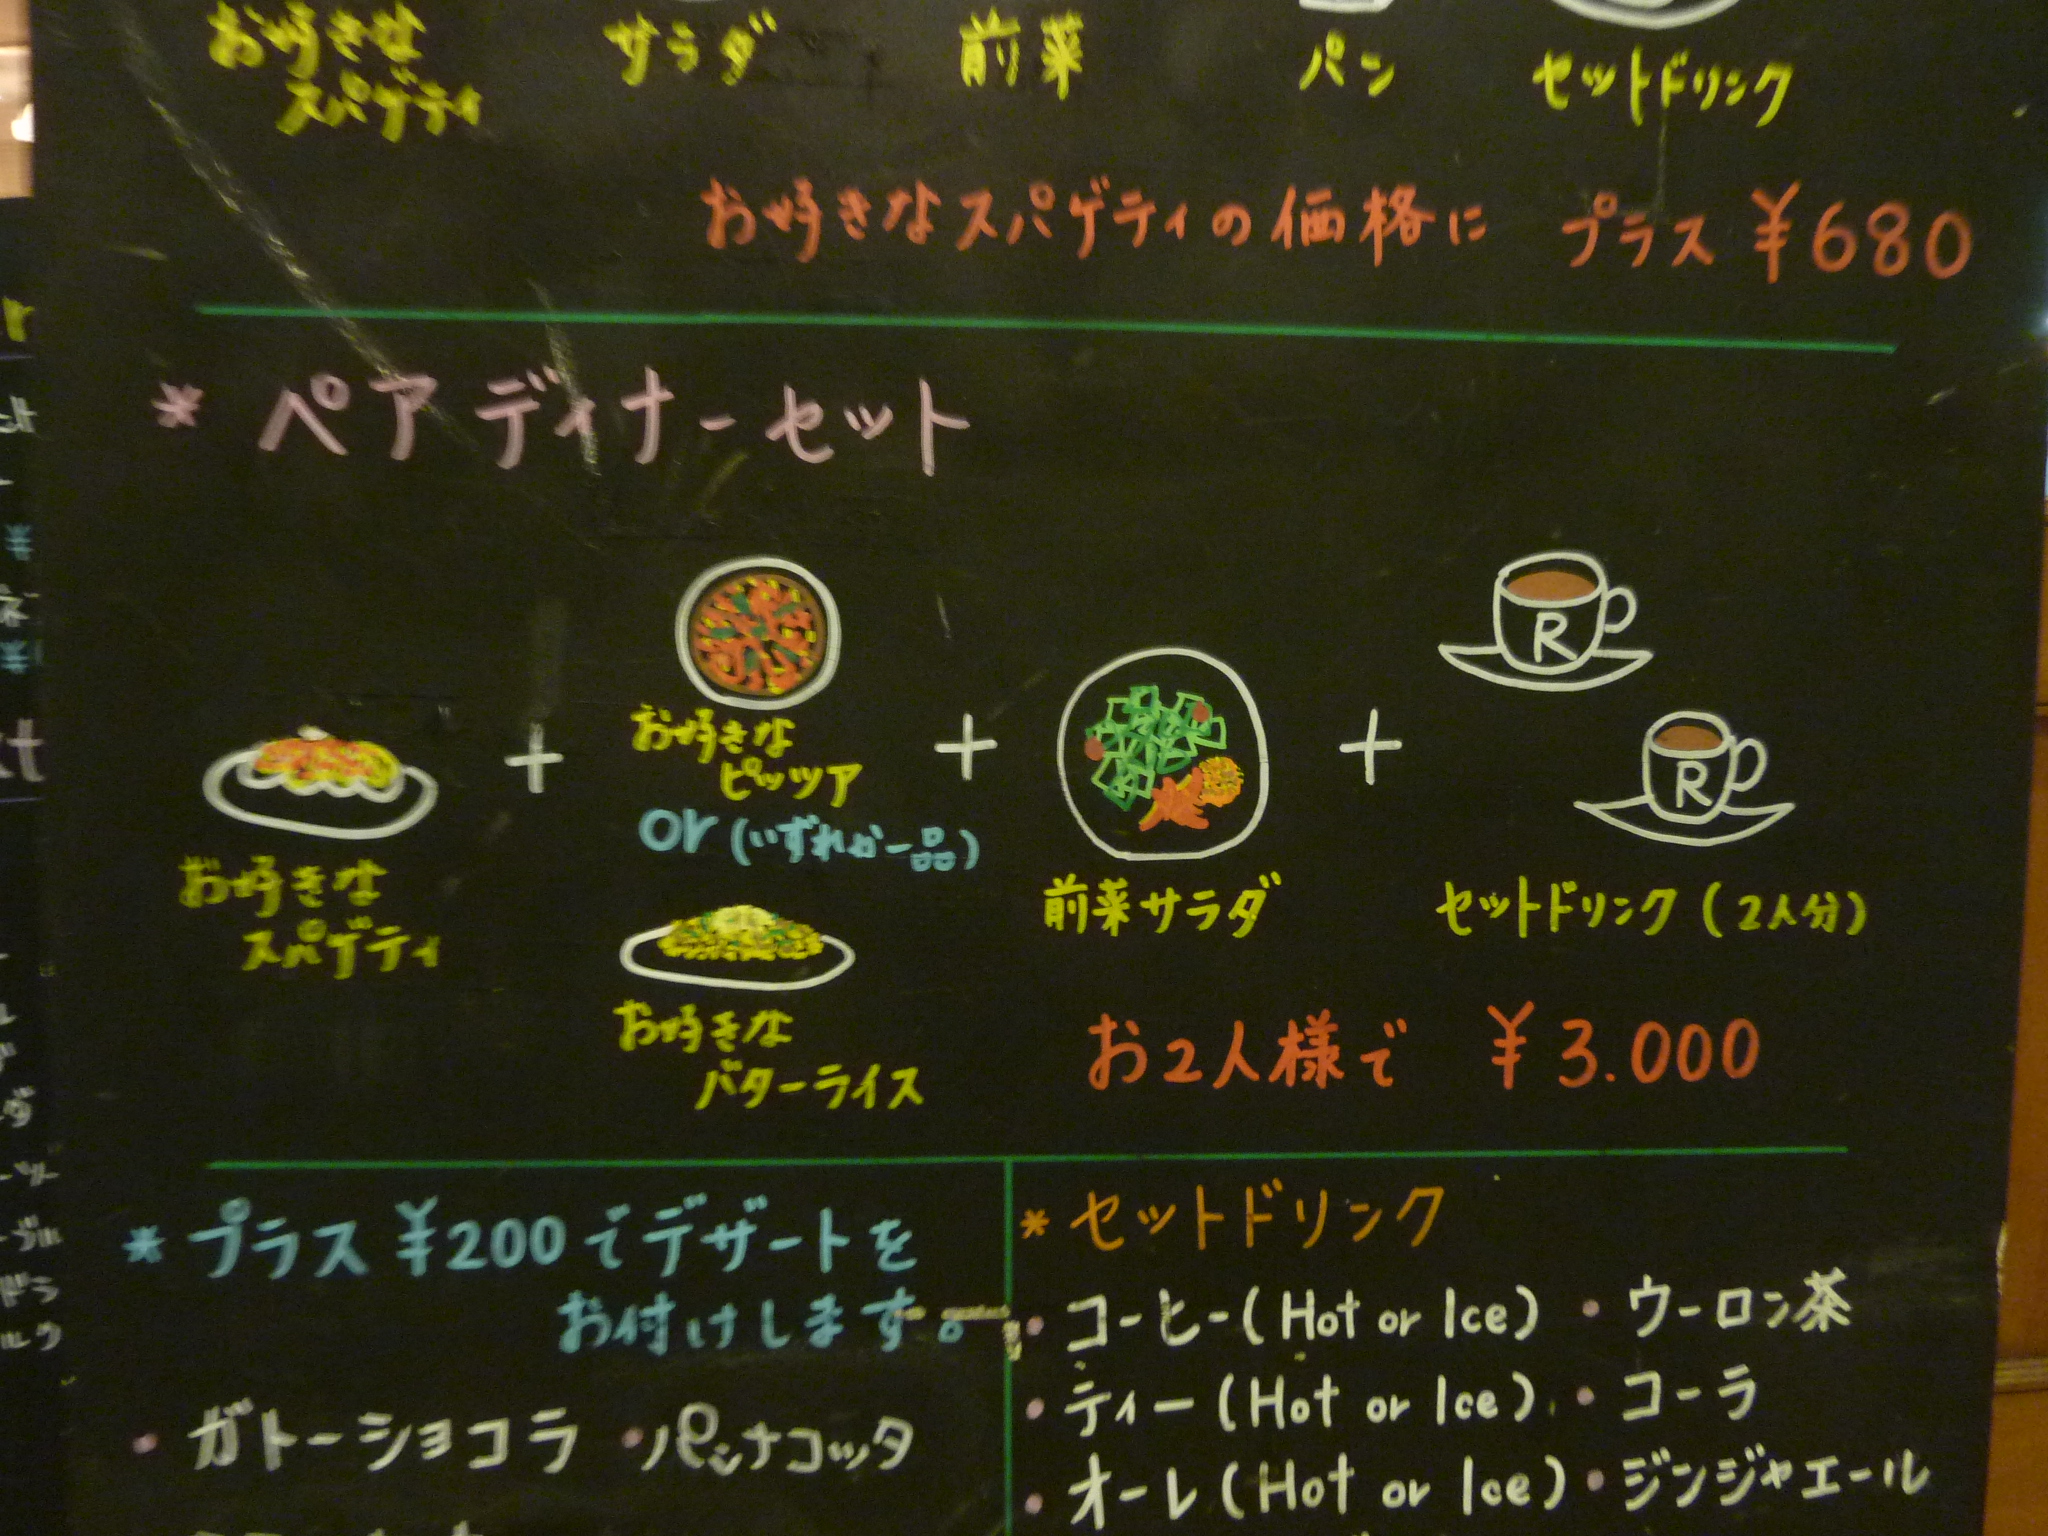 お好きな
スパゲティ
サラダ
前菜
パン
セットドリンク
お好きなスパゲティの価格に プラス ¥680
* ペアディナーセット
お好きな
スパゲティ
+
お好きな
ピッツア
or (いずれか一品)
お好きな
バターライス
+
前菜サラダ
+
R
R
セットドリンク (2人分)
お2人様で ¥3.000
* プラス ¥200でデザートを
お付けします。
・ガトーショコラ ・パンナコッタ
* セットドリンク
・コーヒー(Hot or Ice) ・ウーロン茶
・ティー(Hot or Ice) ・コーラ
・オーレ(Hot or Ice) ・ジンジャエール